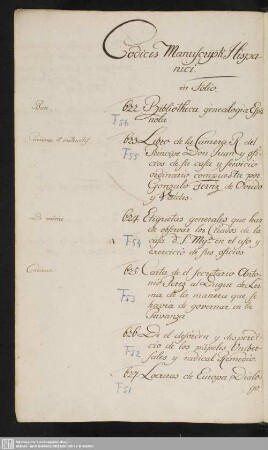 Codices Manuscripti Hispa-
nici.
in Folio.
Bon.
622. Bibliotheca genealogica Espa-
ñola
F56
623. Libro de la Camera R. del
Principe Don Juan y offi-
cios de su casa y servicio
ordinario compuesta por
Gonzalo Fern.z de Oviedo
y Valdes.
F55
624. Etiquetas generales que han
de observar los Criados de la
casa d. S. Mg.d en el uso y
exercicio de sus oficios
F54
625. Carta de el Secretario Anto-
nio Perez al Duque de Ler-
ma de la manera que se
havia de governar en la
Privanza
F53
626. De el desorden y desperdi-
cio de los papeles Univer-
sales y radical Remedio.
F52
627. Locuras de Europa Dialo-
go.
F51